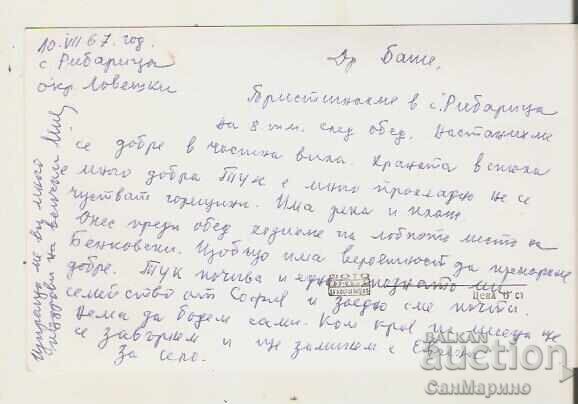 10.VII 67. год.
с. Рибарица
окр. Ловешки
Др Баше,
Пристигнахме в с. Рибарица
на 8 т.м. след обед. Настанихме
се добре в частна вила. Храната в стола
много добра Тук е много прохладно не се
чувстват горещини. Има река и плаж.
Днес преди обед ходихме на лобното място на
Бенковски. Изобщо има вероятност да прекараме
добре. Тук почива и едно познато ми
семейство от София и заедно сме почти.
Няма да бъдем сами. Към края на месеца ще
се завърнем и ще заминем с
за село.
Изпращаме ви много
поздрави на всички
ФОТО
Цена 0
BALKAN
auction
СанМарино